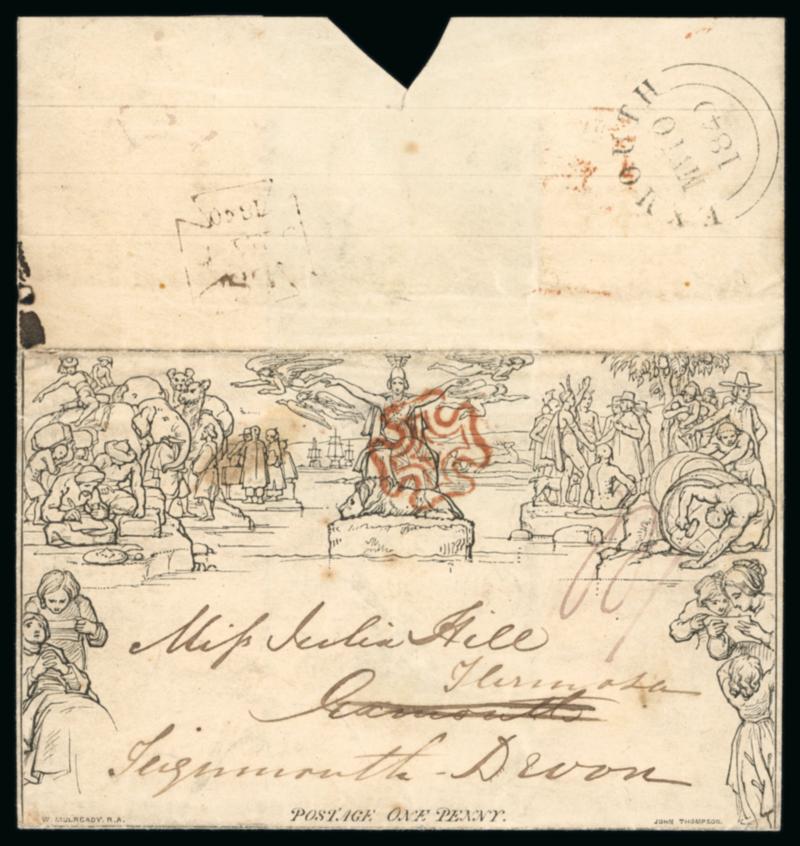 EXMOUTH
MY 10
1840
Miss Julia Hill
Teignmouth - Devon
W. MULREADY. R.A.
POSTAGE ONE PENNY.
JOHN THOMPSON.